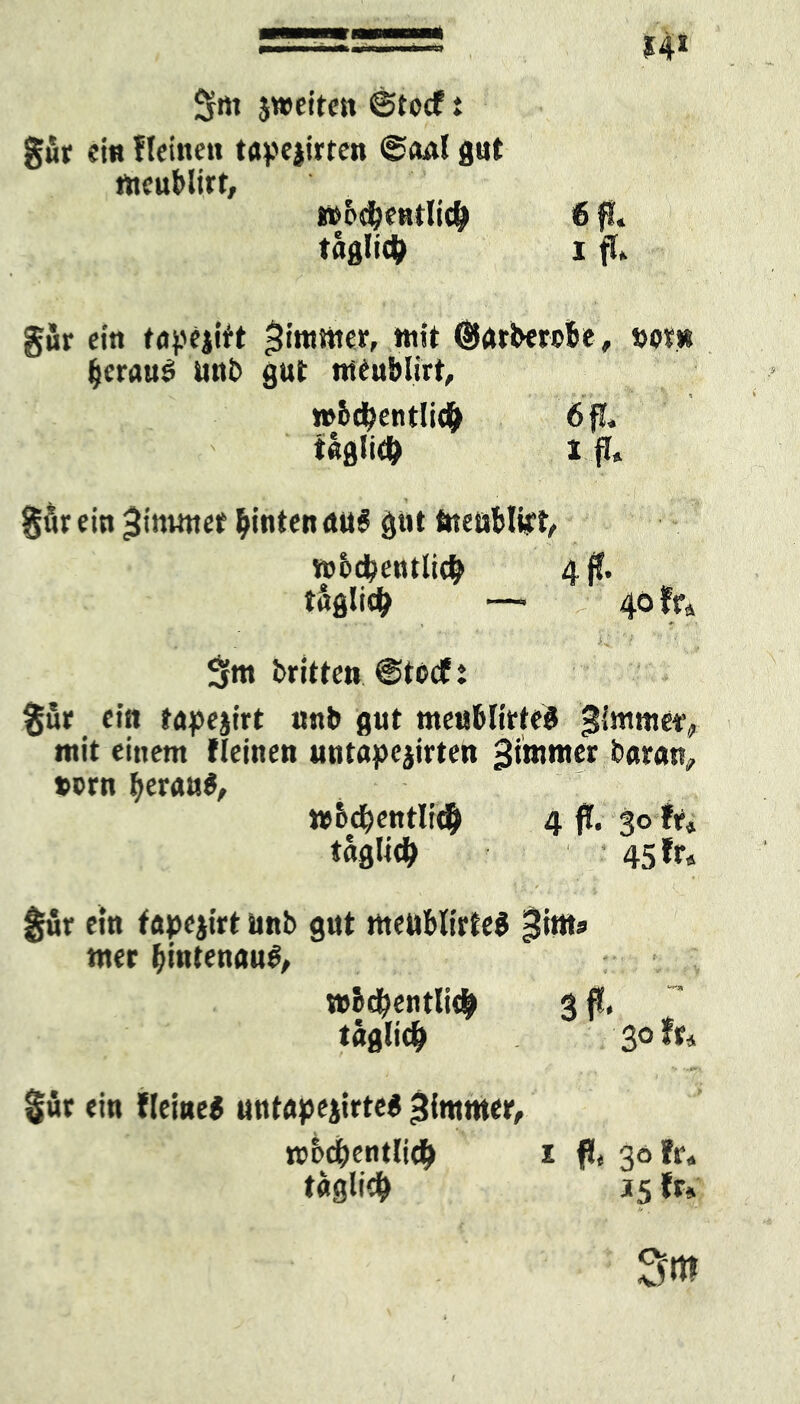 141
Im zweiten Stock:
Für ein kleinen tapezirten Saal gut
meublirt,
wöchentlich 6 fl.
täglich 1 fl.
Für ein tapezirt Zimmer, mit Garderobe, vorn
heraus und gut meublirt,
wöchentlich 6 fl.
täglich 1 fl.
Für ein Zimmer hinten aus gut meublirt,
wöchentlich 4 fl.
täglich — 40 kr.
Im dritten Stock:
Für ein tapezirt und gut meublirtes Zimmer,
mit einem kleinen untapezirten Zimmer daran,
vorn heraus,
wöchentlich 4 fl. 30 kr.
täglich 45 kr.
Für ein tapezirt und gut meublirtes Zim-
mer hintenaus,
wöchentlich 3 fl.
täglich 30 kr.
Für ein kleines untapezirtes Zimmer,
wöchentlich 1 fl. 30 kr.
täglich 15 kr.
Im